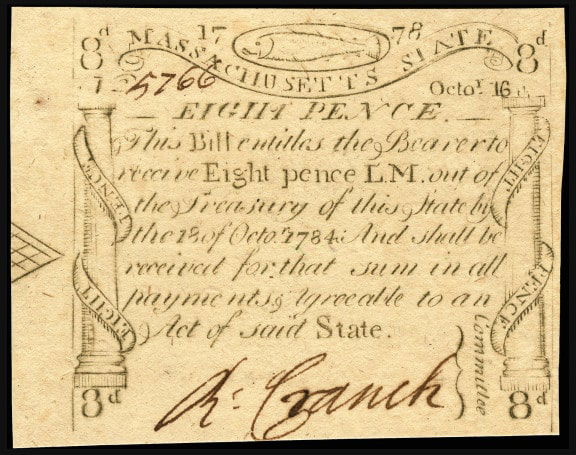 8d 17 78 8d
MASSACHUSETTS STATE
5766 Octor. 16d.
EIGHT PENCE.
This Bill entitles the Bearer to
receive Eight pence L.M. out of
the Treasury of this State by
the 18 of Octor. 1784; And shall be
received for that sum in all
payments, Agreeable to an
Act of said State.
R: Cranch
Committee
EIGHT PENCE
EIGHT PENCE
8d 8d